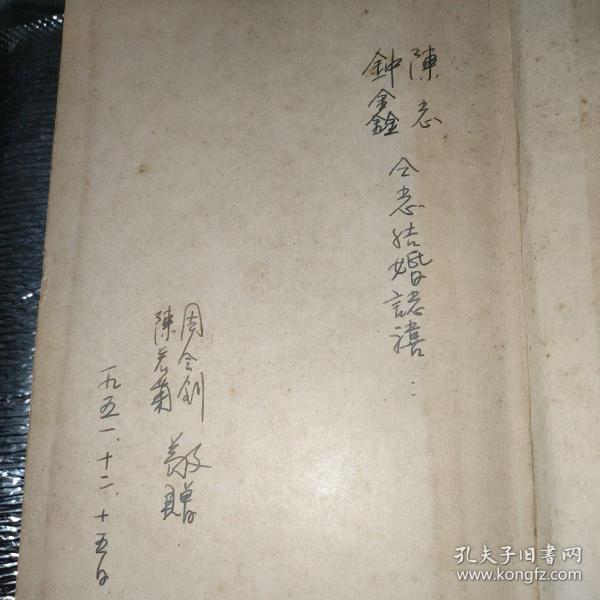 陳志
鈡鑫
仝志结婚誌禧：
周令釗
陳若菊
敬贈
一九五一.十二.十五日
孔夫子旧書网
www.kongfz.com